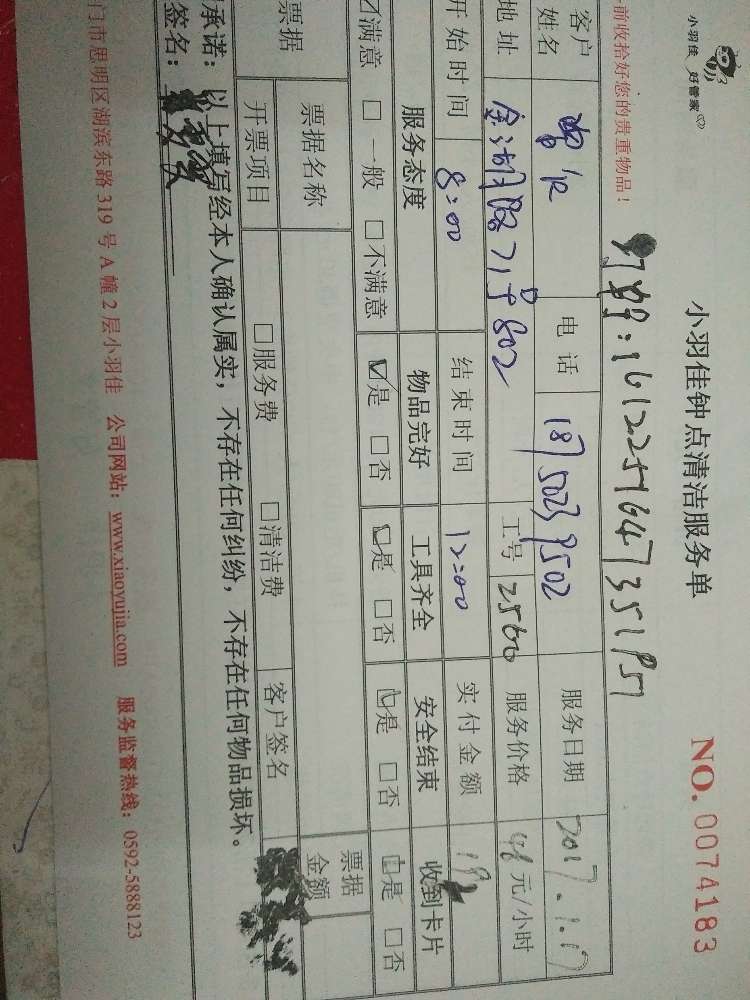 小羽佳 好管家
小羽佳钟点清洁服务单
NO. 0074183
前收拾好您的贵重物品！
客户姓名 电话 服务日期 2017.1.17
地址 金湖路71号802 工号 2560 服务价格 48 元/小时
开始时间 8:00 结束时间 12:00 实付金额
服务态度 物品完好 工具齐全 安全结束 收到卡片
☑满意 □一般 □不满意 ☑是 □否 ☑是 □否 ☑是 □否 ☑是 □否
票据 票据名称 票据金额
开票项目 □服务费 □清洁费 客户签名
承诺：以上填写经本人确认属实，不存在任何纠纷，不存在任何物品损坏。
签名：
门市思明区湖滨东路 319 号 A 幢 2 层小羽佳 公司网站：www.xiaoyujia.com 服务监督热线：0592-5888123